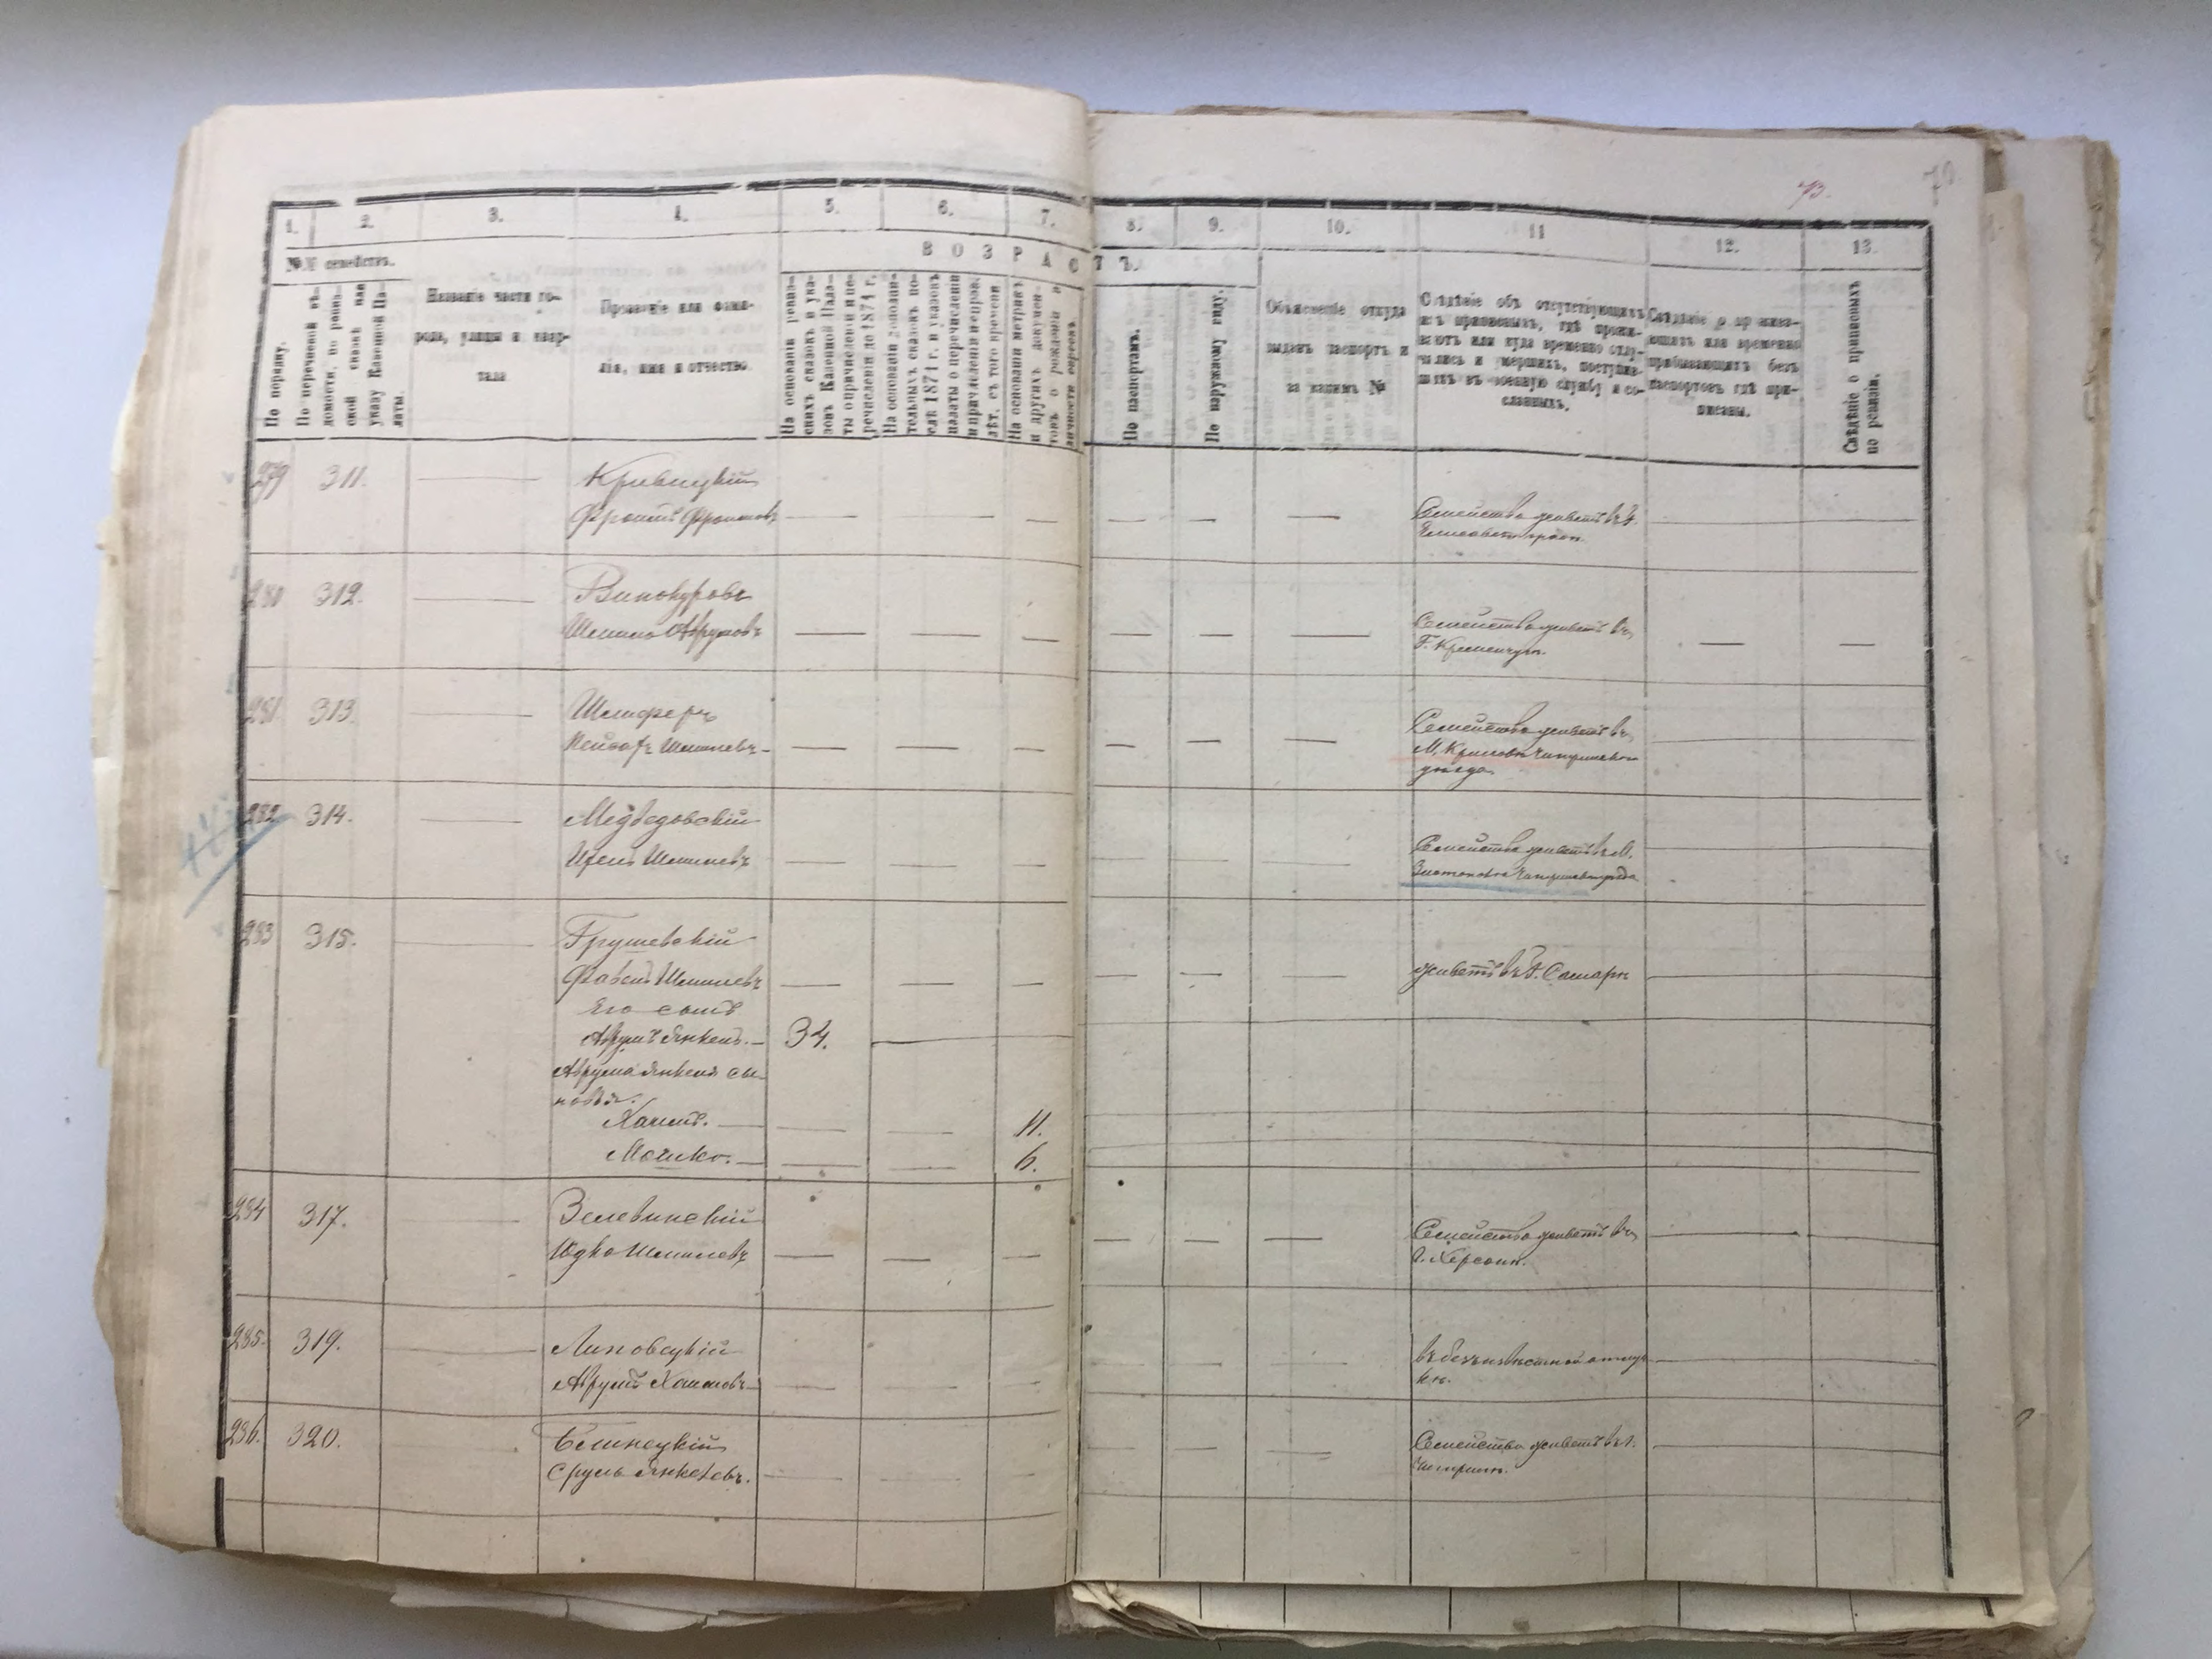 73.
1.
2.
3.
4.
5.
6.
7.
8.
9.
10.
11
12.
13.
№№ семействъ.
ВОЗРАСТЪ.
По порядку.
По перечневой вѣ-
домости, по ревиз-
ской сказкѣ или
указу Казенной Па-
латы.
Названіе части го-
рода, улицы и квар-
тала
Прозваніе или фами-
лія, имя и отчество.
На основаніи ревиз-
скихъ сказокъ и ука-
зовъ Казенной Пала-
ты о причисленіи и пе-
речисленіи до 1874 г.
На основаніи дополни-
тельныхъ сказокъ по-
слѣ 1874 г. и указовъ
палаты о перечисленіи
и причисленіи и
лѣт. съ того времени
На основаніи метрикъ
и другихъ докумен-
товъ о рожденіи и
личности евреевъ.
По паспортамъ.
По наружному виду.
Объясненіе откуда
выданъ паспортъ и
за какимъ №
Свѣдѣніе объ отсутствующихъ
изъ приписныхъ, гдѣ прожи-
ваютъ или куда временно отлу-
чились и умершихъ, поступив-
шихъ въ военную службу и со-
сланныхъ.
Свѣдѣніе о прожива-
ющихъ или временно
пребывающихъ безъ
паспортовъ гдѣ при-
писаны.
Свѣдѣніе о приписныхъ
по ревизіи.
279 311. Кривицкій
Фроимъ Фроимовъ Семейство живетъ въ г.
Елисаветградѣ.
280 312. Винокуровъ
Шмило Аврумовъ Семейство живетъ въ
Г. Кременчугѣ.
281. 313. Шлиферъ
Лейзоръ Шмилевъ Семейство живетъ въ
М. Крыловѣ Чигиринскаго
уѣзда
282. 314. Медведовскій
Шмилевъ Семейство живетъ въ М.
Златополѣ Чигиринск уѣзда
283 315. Грушевскій
Файвель Шмилевъ живетъ въ г. Самарѣ
Его сынъ
Аврумъ Янкель. 34.
Аврума Янкеля сы-
новья.
Хаимъ. 11.
Мошко. 6.
284 317. Зелевинскій
Юдко Шмилевъ Семейство живетъ въ
г. Херсонѣ.
285. 319. Липовецкій
Аврумъ Хаимовъ въ безъизвѣстной отлуч-
кѣ.
286. 320. Бѣлинецкій
Сруль Янкелевъ. Семейство живетъ въ г.
Чигиринѣ.